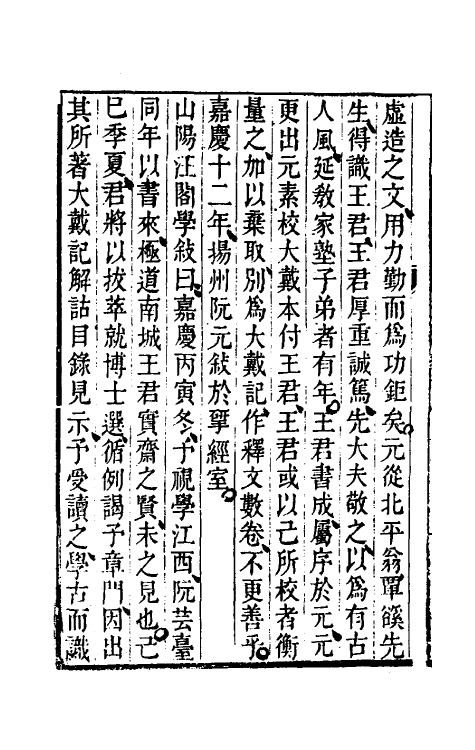 虛造之文、用力勤而爲功鉅矣。元從北平翁覃谿先
生、得識王君、王君厚重誠篤、先大夫敬之、以爲有古
人風、延敎家塾子弟者有年。王君書成、屬序於元、元
更出元素校大戴本付王君、王君或以己所校者衡
量之、加以棄取、別爲大戴記、作釋文數卷、不更善乎。
嘉慶十二年、揚州阮元敍於揅經室。
山陽汪閣學敍曰、嘉慶丙寅冬、予視學江西、阮芸臺
同年以書來、極道南城王君實齋之賢、未之見也。己
巳季夏、君將以拔萃就博士選、循例謁予章門、因出
其所著大戴記解詁目錄見示、予受讀之、學古而識